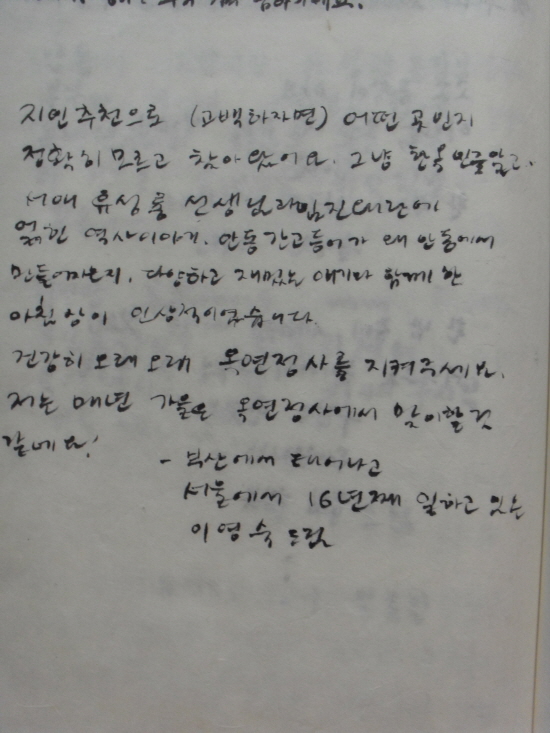 지인 추천으로 (고백하자면) 어떤 곳인지
정확히 모르고 찾아왔어요. 그냥 한옥인줄알고.
서애 류성룡 선생님과 임진왜란에
얽힌 역사이야기. 안동간고등어가 왜 안동에서
만들어지는지, 다양하고 재밌는 얘기와 함께 한
아침상이 인상적이었습니다.
건강히 오래오래 옥연정사를 지켜주세요.
저는 매년 가을은 옥연정사에서 맞이할 것
같네요!
- 부산에서 태어나고
서울에서 16년째 일하고 있는
이영숙 드림